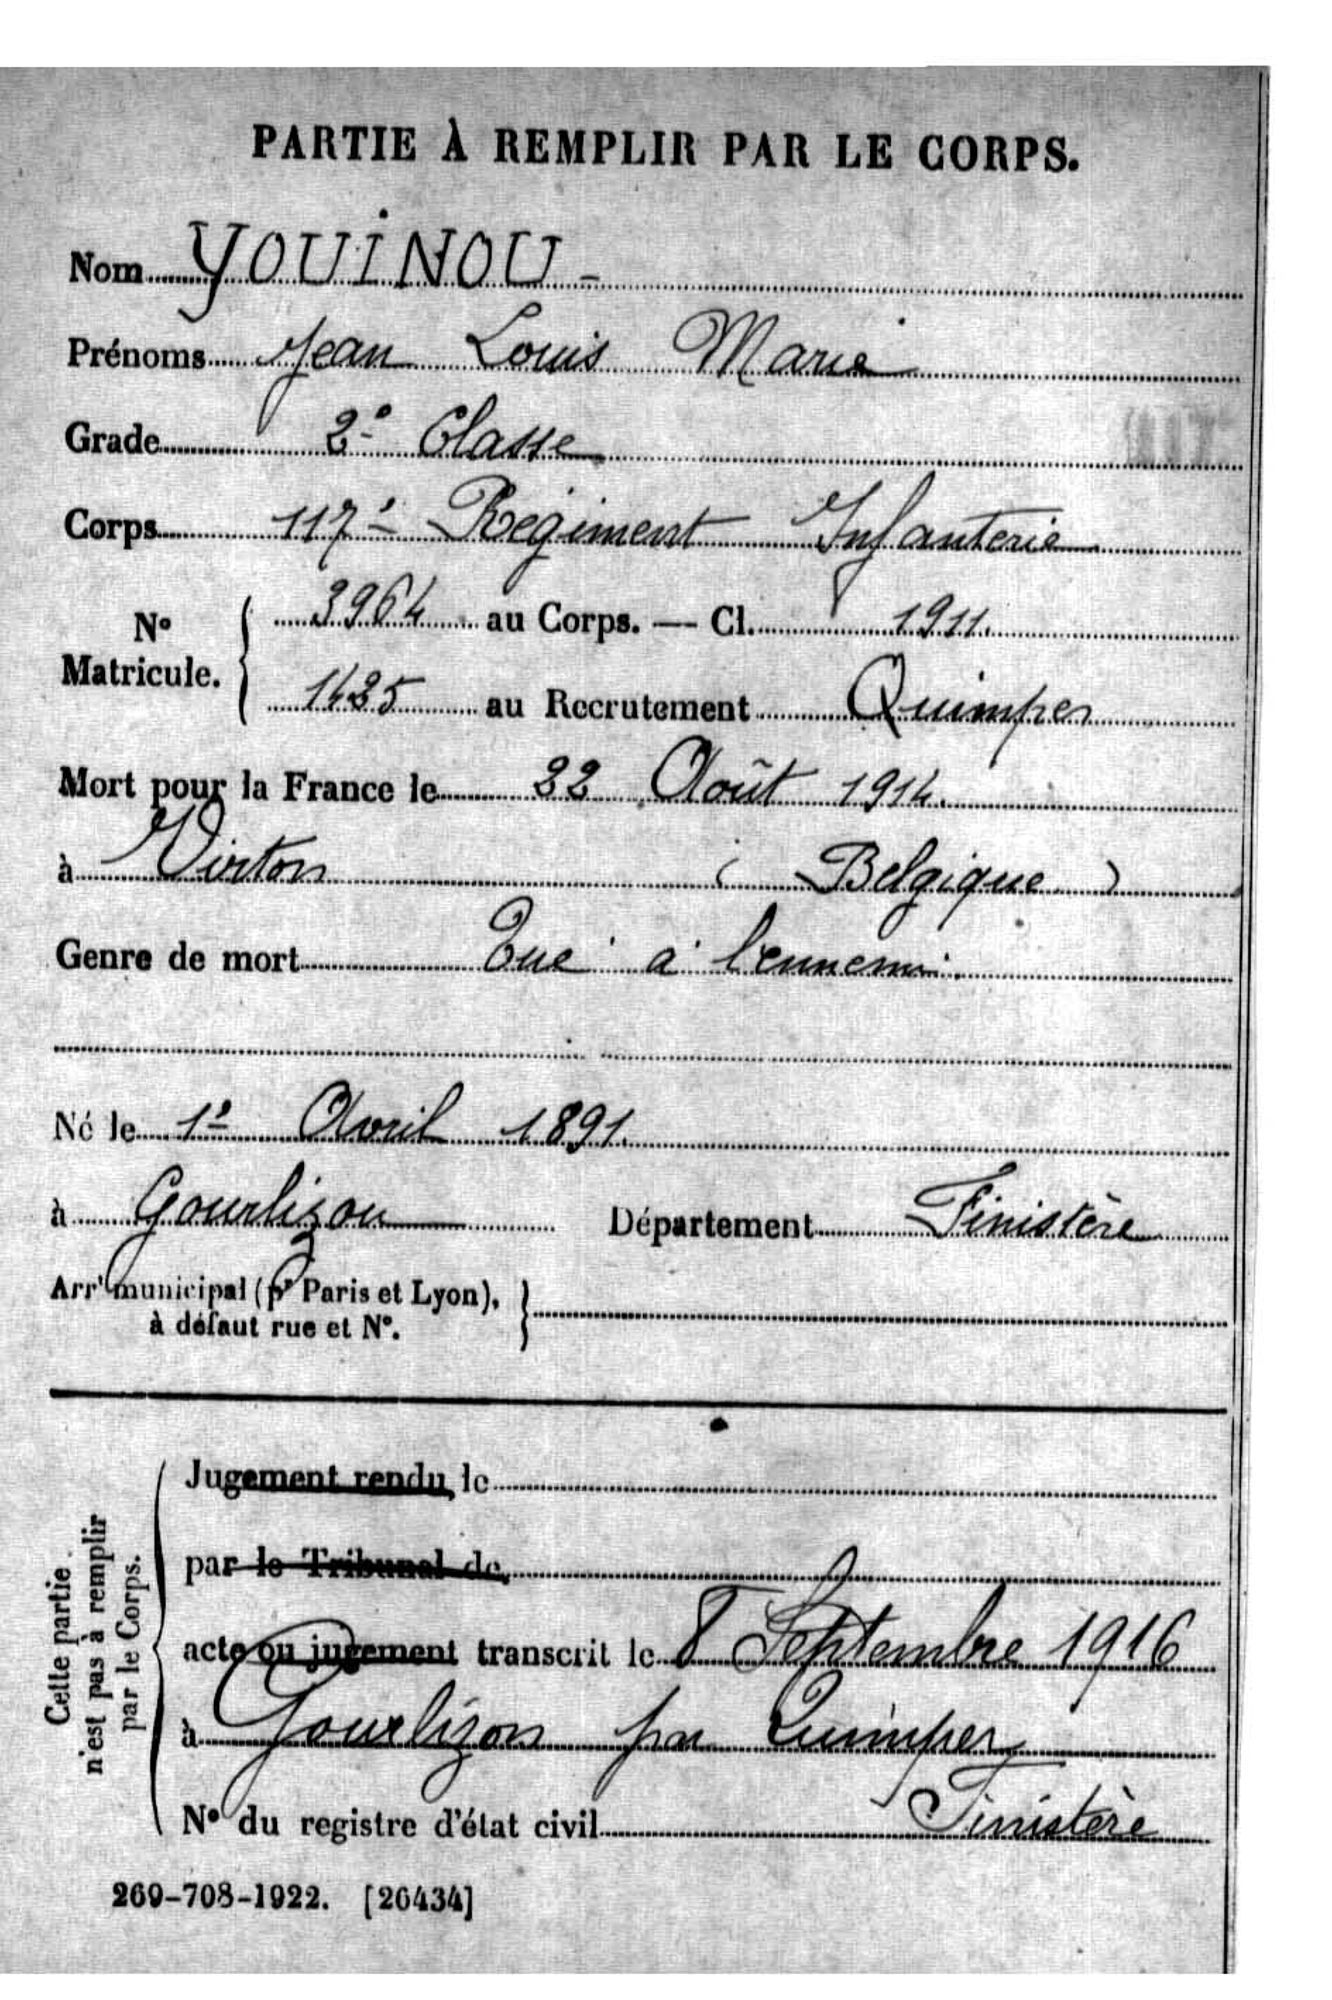 PARTIE À REMPLIR PAR LE CORPS.
Nom YOUINOU -
Prénoms Jean Louis Marie
Grade 2e Classe
Corps 117e Régiment Infanterie
No Matricule. { 3964 au Corps. — Cl. 1911.
1425 au Recrutement Quimper
Mort pour la France le 22 Août 1914.
à Virton ( Belgique )
Genre de mort Tué à l'ennemi.
Né le 1er Avril 1891.
à Gourlizon Département Finistère
Arrt municipal (pr Paris et Lyon), }
à défaut rue et No.
Cette partie n'est pas à remplir par le Corps.
Jugement rendu le
par le Tribunal de
acte ou jugement transcrit le 8 Septembre 1916
à Gourlizon par Quimper
Finistère
No du registre d'état civil
269-708-1922. [26434]